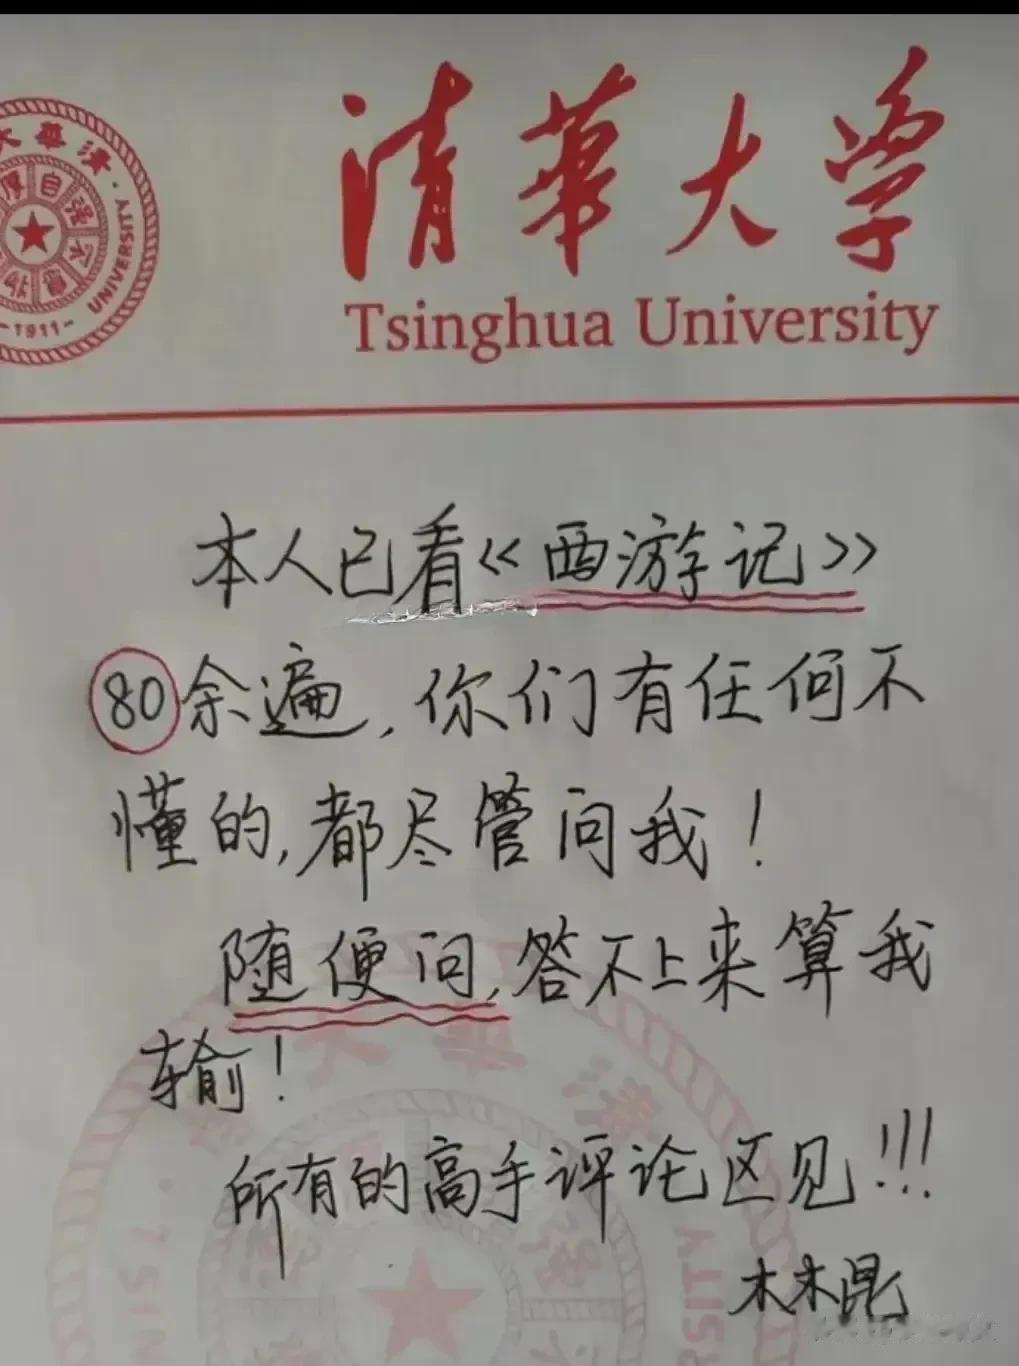 清華大学
Tsinghua University
大華清
UNIVERSITY
自强不息
厚
-1911-
本人已看《西游记》
80余遍,你们有任何不
懂的,都尽管问我!
随便问,答不上来算我
输!
所有的高手评论区见!!!
木木昆